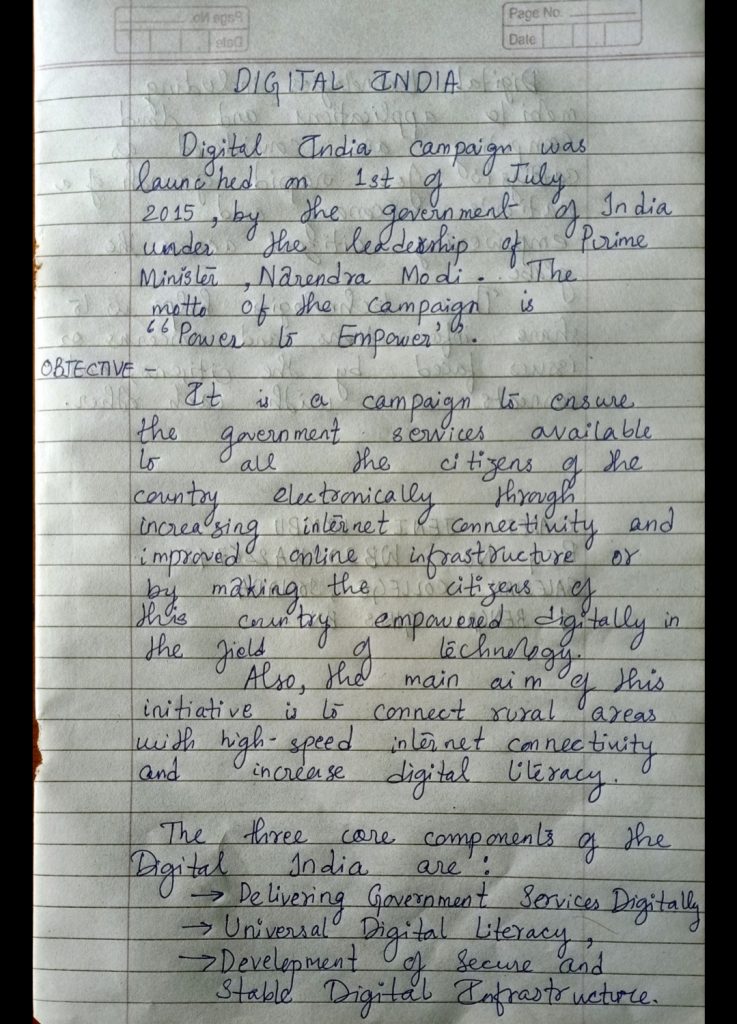 Page No.
Date
DIGITAL INDIA
Digital India campaign was
launched on 1st of July
2015, by the government of India
under the leadership of Prime
Minister, Narendra Modi. The
motto of the campaign is
“Power to Empower”.
OBJECTIVE –
It is a campaign to ensure
the government services available
to all the citizens of the
country electronically through
increasing internet connectivity and
improved online infrastructure or
by making the citizens of
this country empowered digitally in
the field of technology.
Also, the main aim of this
initiative is to connect rural areas
with high-speed internet connectivity
and increase digital literacy.
The three core components of the
Digital India are:
→ Delivering Government Services Digitally
→ Universal Digital Literacy,
→ Development of Secure and
Stable Digital Infrastructure.